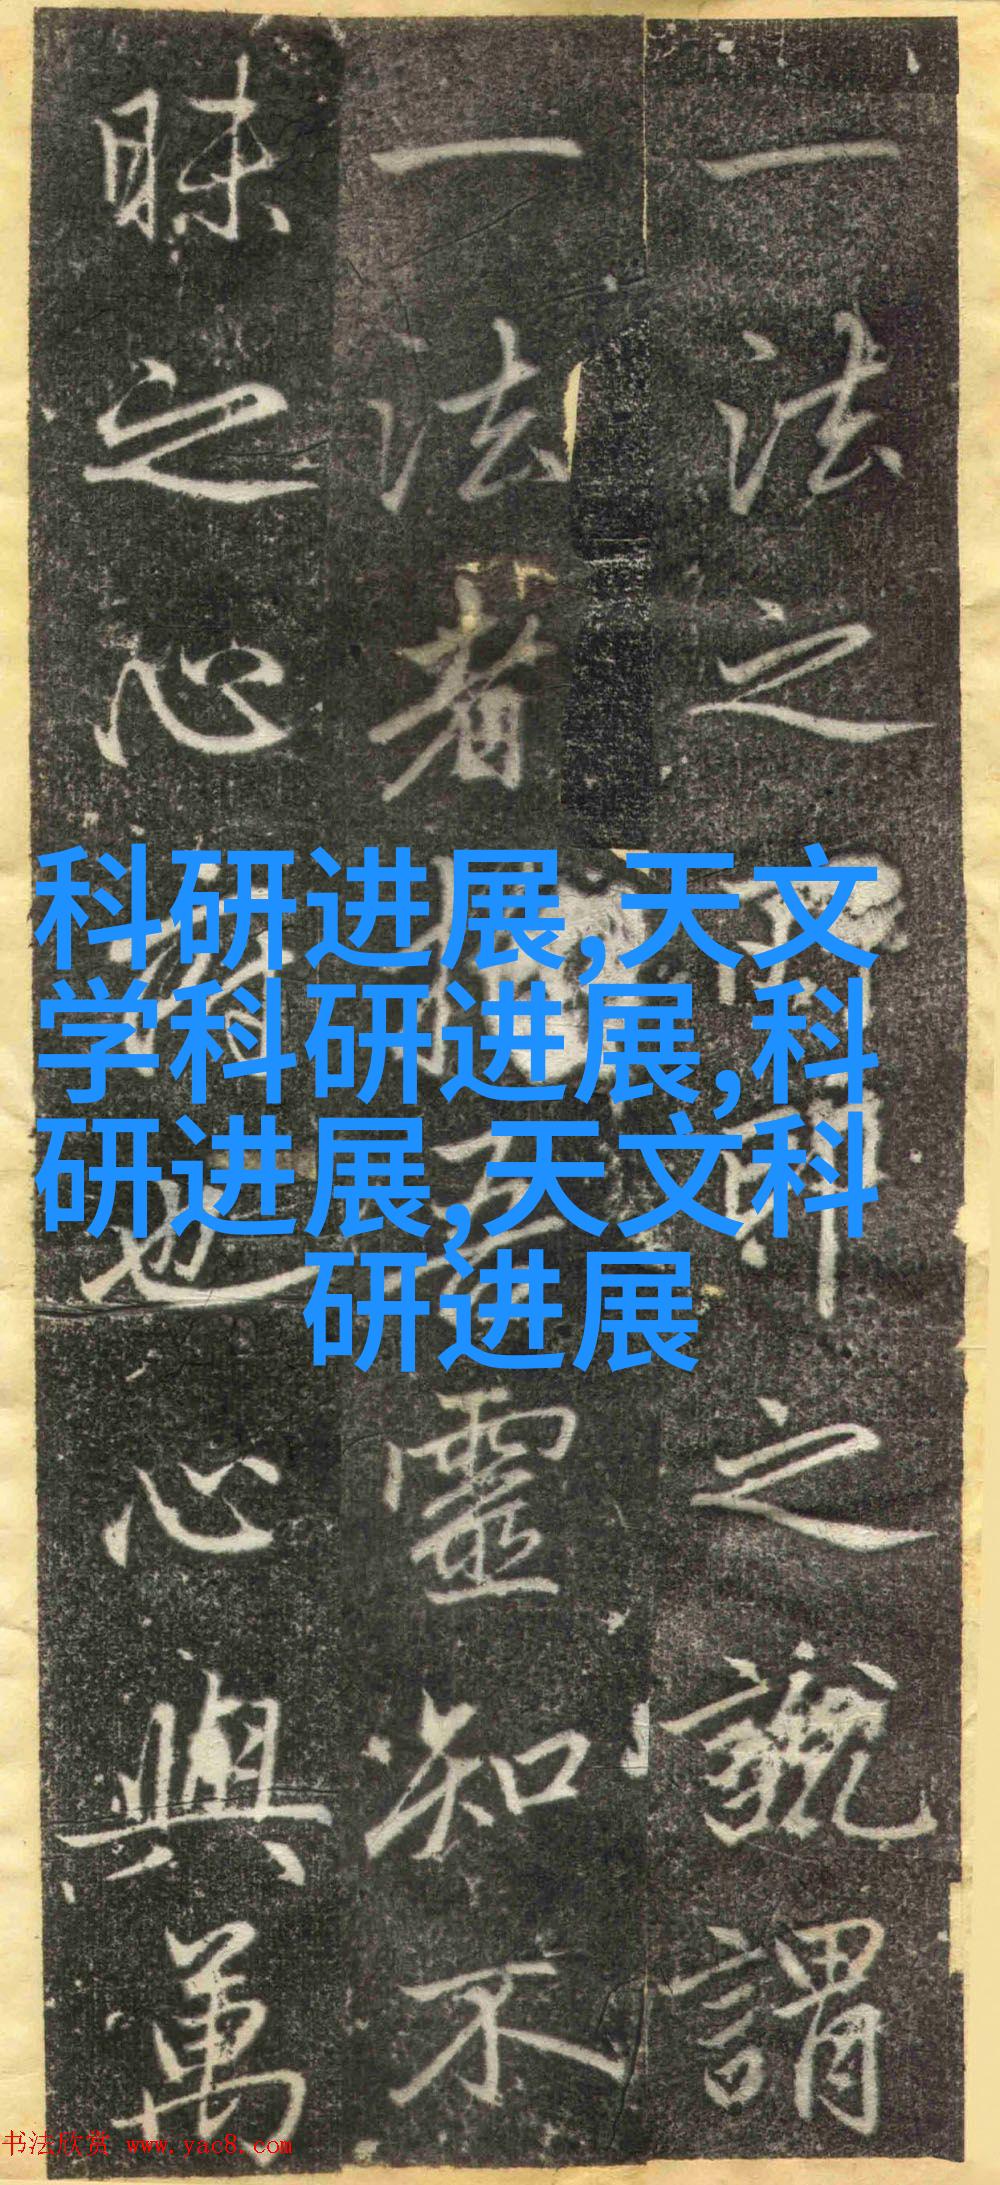 一法之之謂
一法者靈知不
昧之心也心與萬
科研进展,天文
学科研进展,科
研进展,天文科
研进展
书法欣赏 www.yac8.com